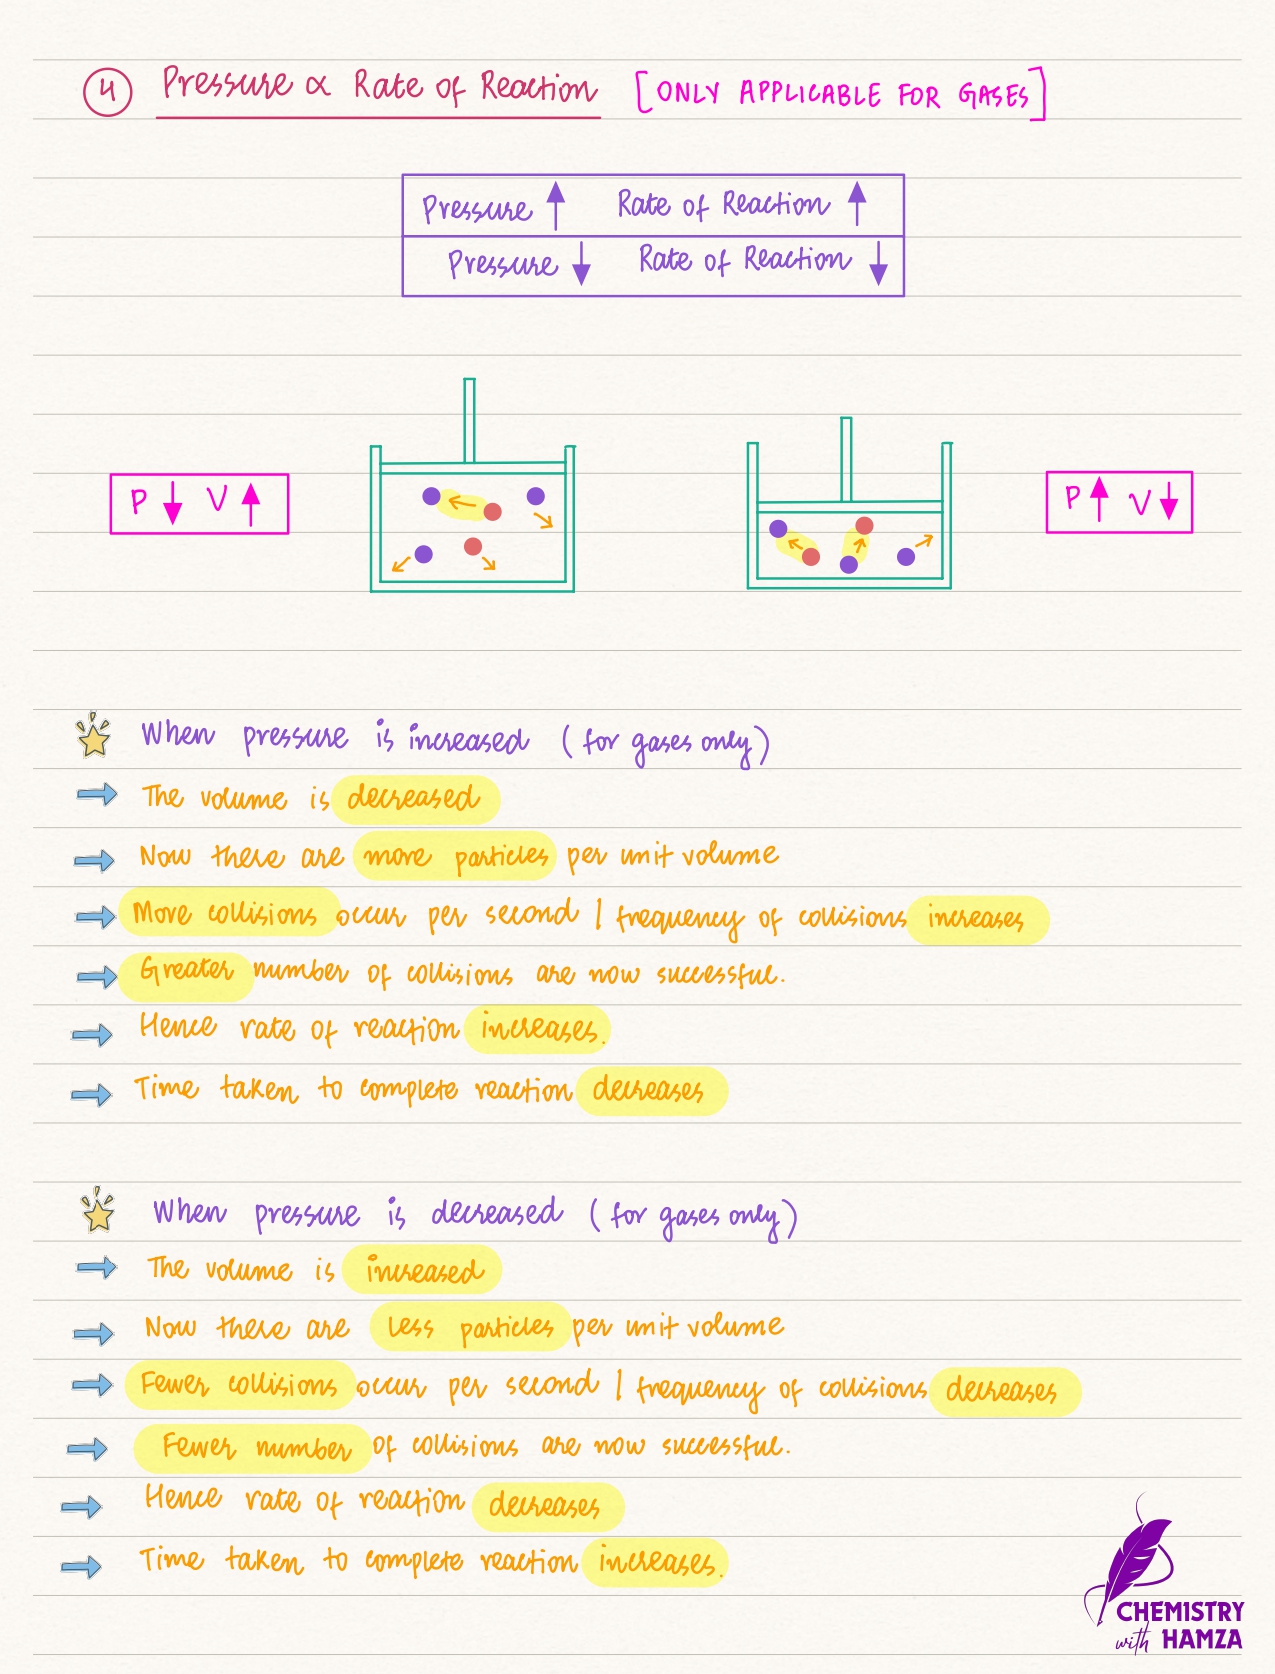 4 Pressure ∝ Rate of Reaction [ONLY APPLICABLE FOR GASES]
Pressure ↑ Rate of Reaction ↑
Pressure ↓ Rate of Reaction ↓
P ↓ V ↑
P ↑ V ↓
When pressure is increased (for gases only)
→ The volume is decreased
→ Now there are more particles per unit volume
→ More collisions occur per second / frequency of collisions increases
→ Greater number of collisions are now successful.
→ Hence rate of reaction increases.
→ Time taken to complete reaction decreases
When pressure is decreased (for gases only)
→ The volume is increased
→ Now there are less particles per unit volume
→ Fewer collisions occur per second / frequency of collisions decreases
→ Fewer number of collisions are now successful.
→ Hence rate of reaction decreases
→ Time taken to complete reaction increases.
CHEMISTRY
with HAMZA